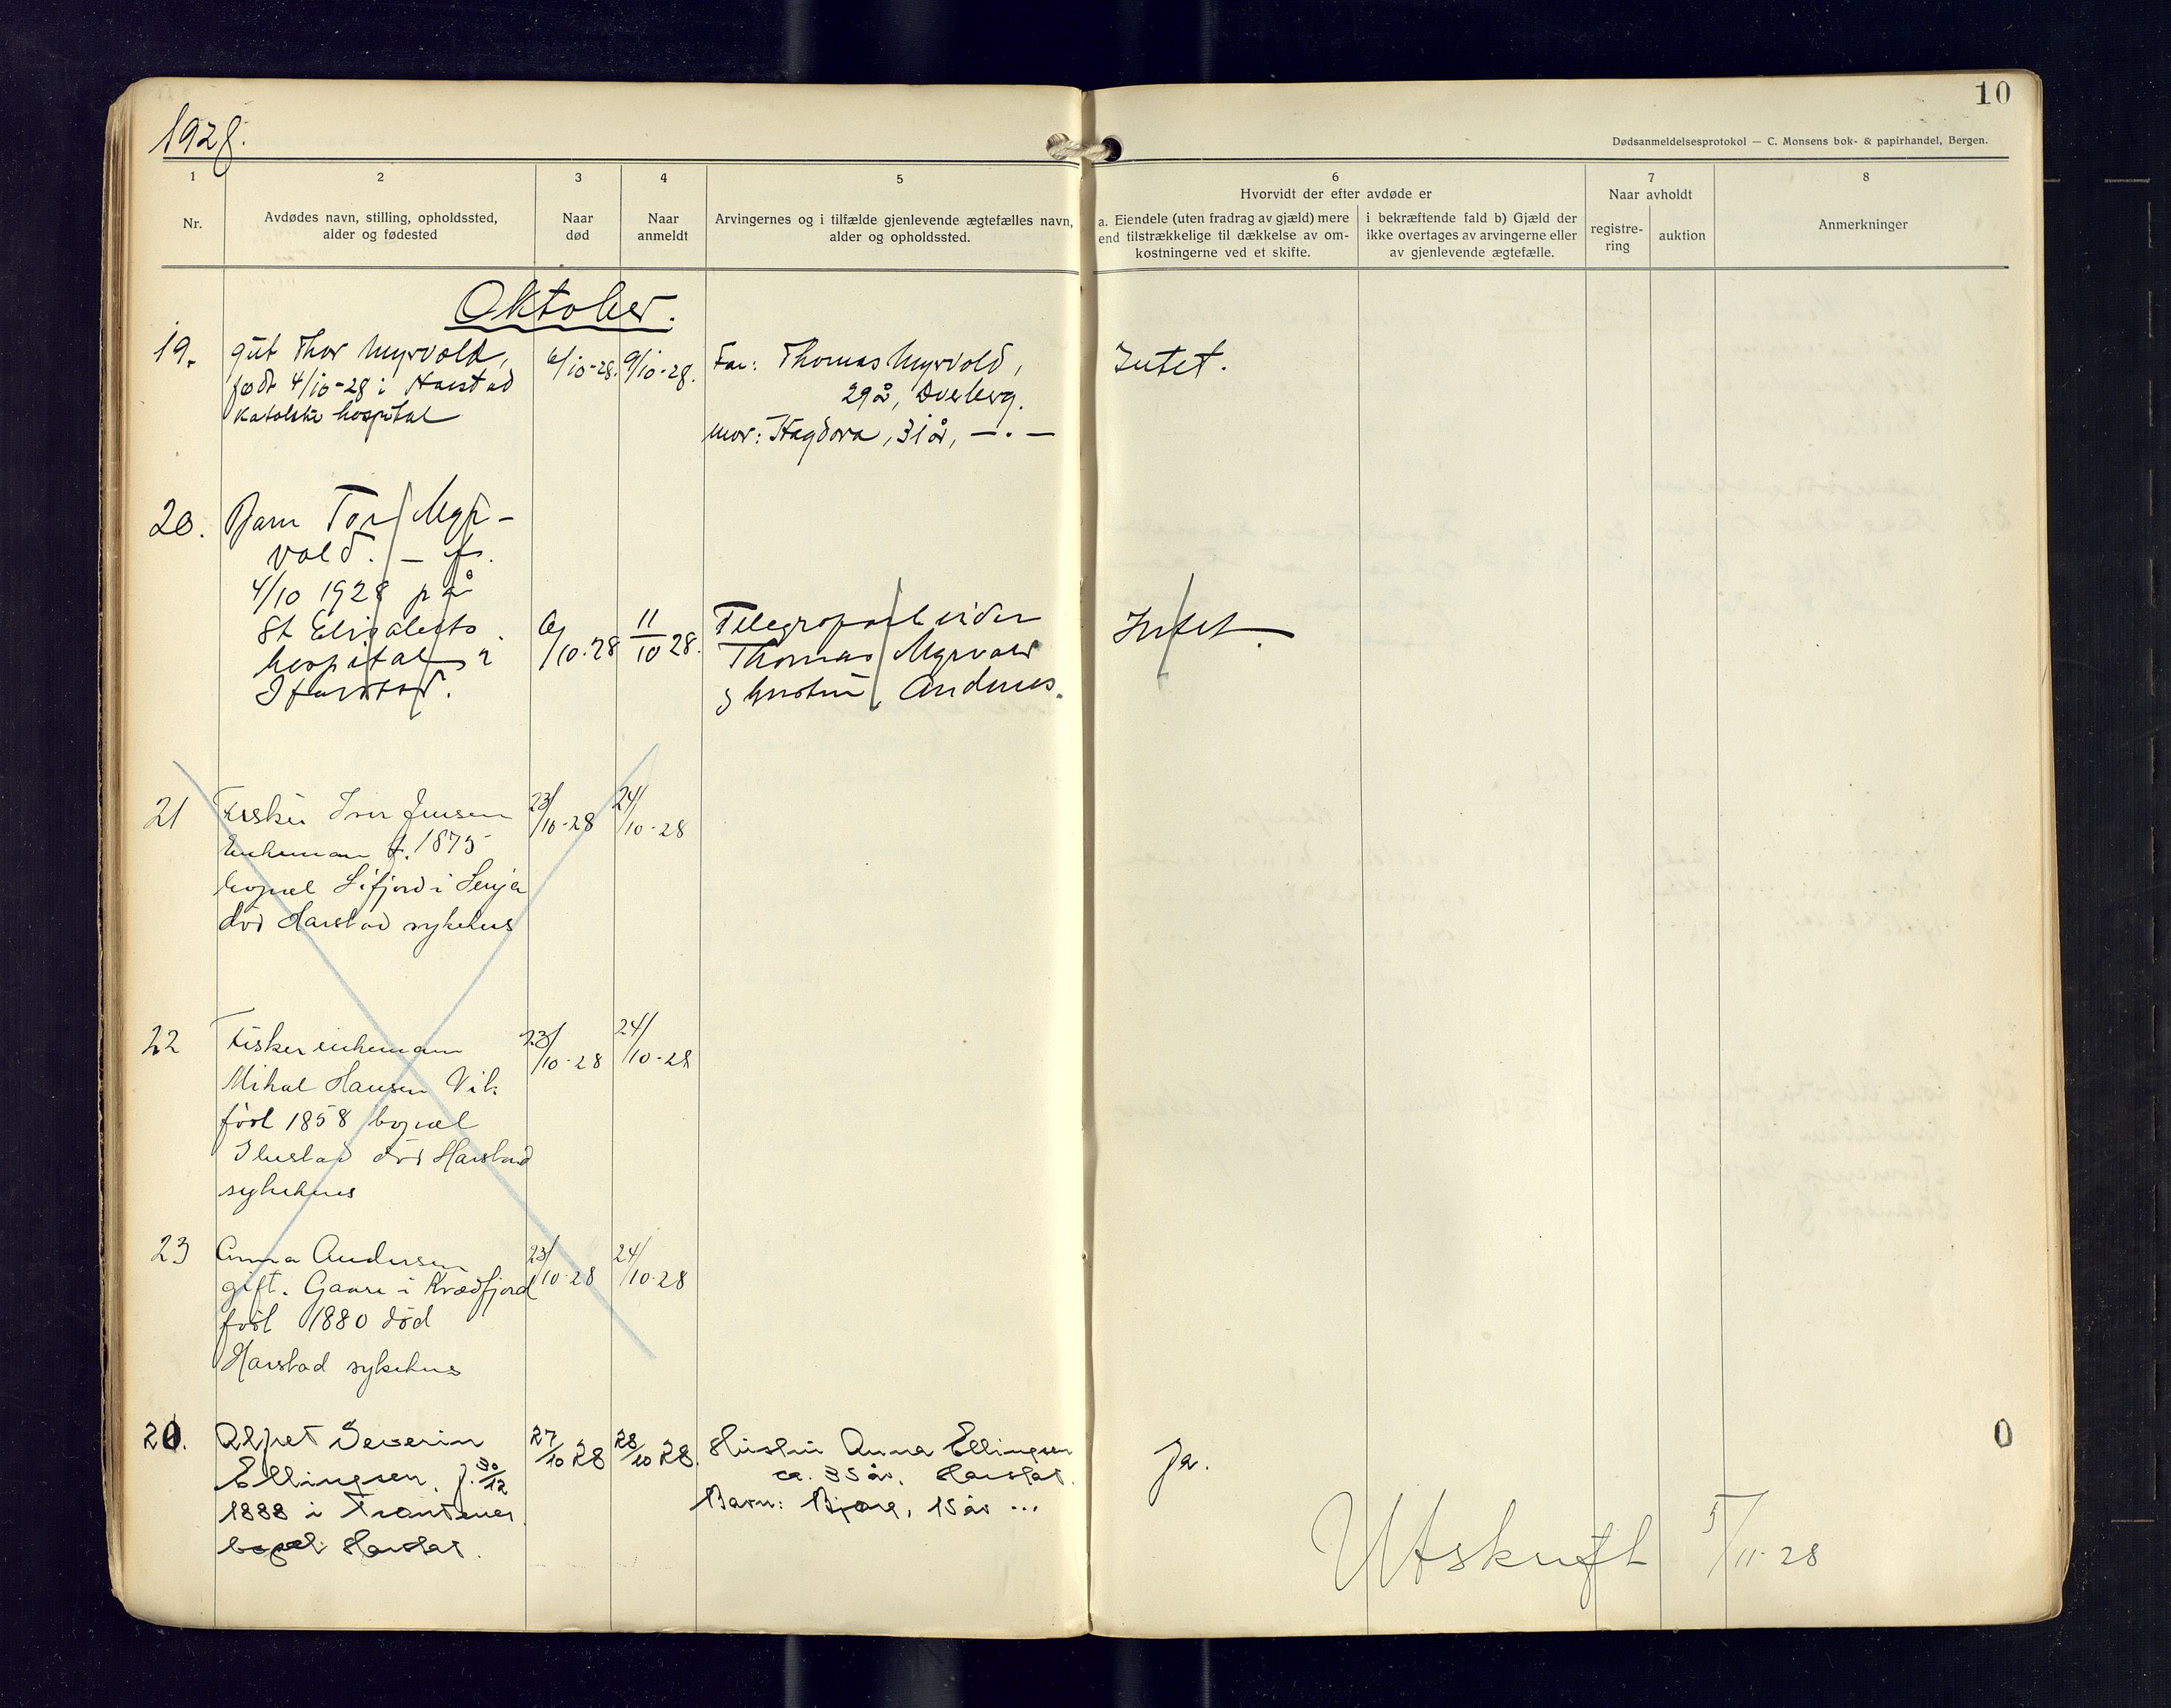 1928.
10
Dødsanmeldelsesprotokol — C. Monsens bok- & papirhandel, Bergen.
1
Nr.
2
Avdødes navn, stilling, opholdssted,
alder og fødested
3
Naar
død
4
Naar
anmeldt
5
Arvingernes og i tilfælde gjenlevende ægtefælles navn,
alder og opholdssted.
6
Hvorvidt der efter avdøde er
a. Eiendele (uten fradrag av gjæld) mere
end tilstrækkelige til dækkelse av om-
kostningerne ved et skifte.
i bekræftende fald b) Gjæld der
ikke overtages av arvingerne eller
av gjenlevende ægtefælle.
7
Naar avholdt
registre-
ring
auktion
8
Anmerkninger
Oktober.
19.
gut Thor Myrvold,
født 4/10-28 i Harstad
katolske hospital
6/10-28.
9/10-28.
Far: Thomas Myrvold,
29 år,
Mor: Hagdora, 31 år, — . —
Intet.
20.
Barn Tor Myr-
vold. — f.
4/10 1928 på
St Elisabets
hospital i
Harstad.
6/10.28
11/10 28.
Thomas Myrvold
Intet.
21
Fisker Iver Jensen
Enkemann f. 1875
bopæl Sifjord i Senja
død Harstad sykehus
23/10-28
24/10-28
22
Fisker enkemann
Mikal Hansen Vik
født 1858 bopæl
død Harstad
sykehus
23/10-28
24/10-28
23
Anna Andersen
gift. Gaare i Kvædfjord
født 1880 død
Harstad sykehus
23/10-28
24/10-28
20.
Alfret Severin
Ellingsen, f. 30/12
1888 i Trondenes
bopæl: Harstad.
27/10 28
28/10 28.
Hustru Anna Ellingsen
ca. 35 år. Harstad.
Barn: 15 år ...
Ja.
0
Utskrift 5/11-28